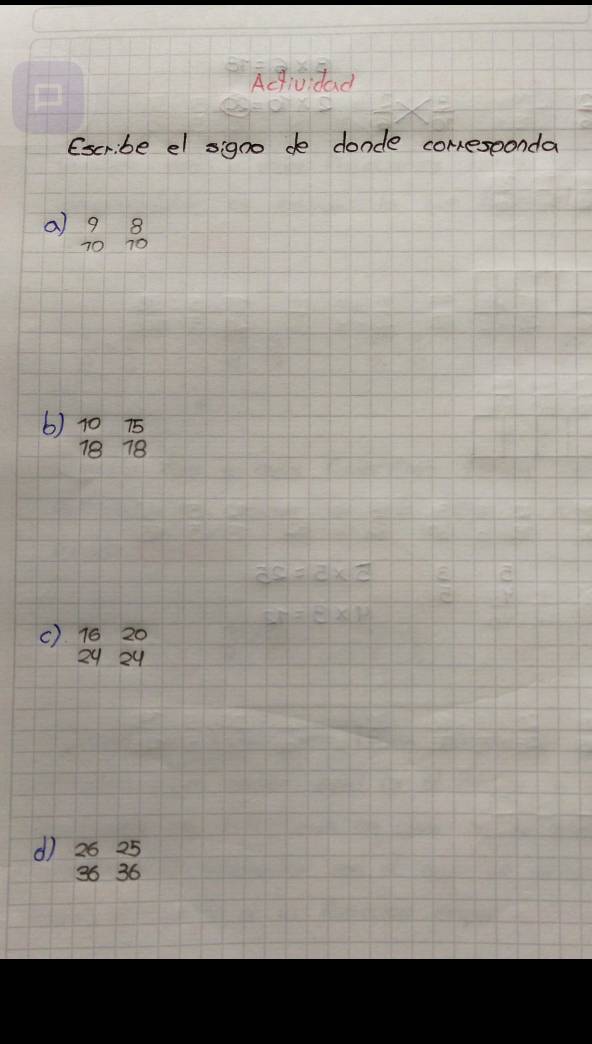 Actividad
Escribe el signo de donde corresponda
a) 9 8
10 10
b) 10 15
18 18
c) 16 20
24 24
d) 26 25
36 36